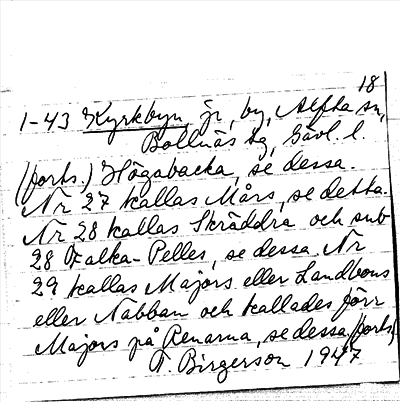 18
1-43 Kyrkbyn, jr, by, Alfta sn,
Bollnäs tg, Gävl. l.
(forts.) Högabacka, se dessa.
Nr 27 kallas Mårs, se detta.
Nr 28 kallas Skräddra och sub
28 Falka-Pelles, se dessa. Nr
29 kallas Majors eller Landbons
eller Nabban och kallades förr
Majors på Renarna, se dessa (forts)
T. Birgerson 1947